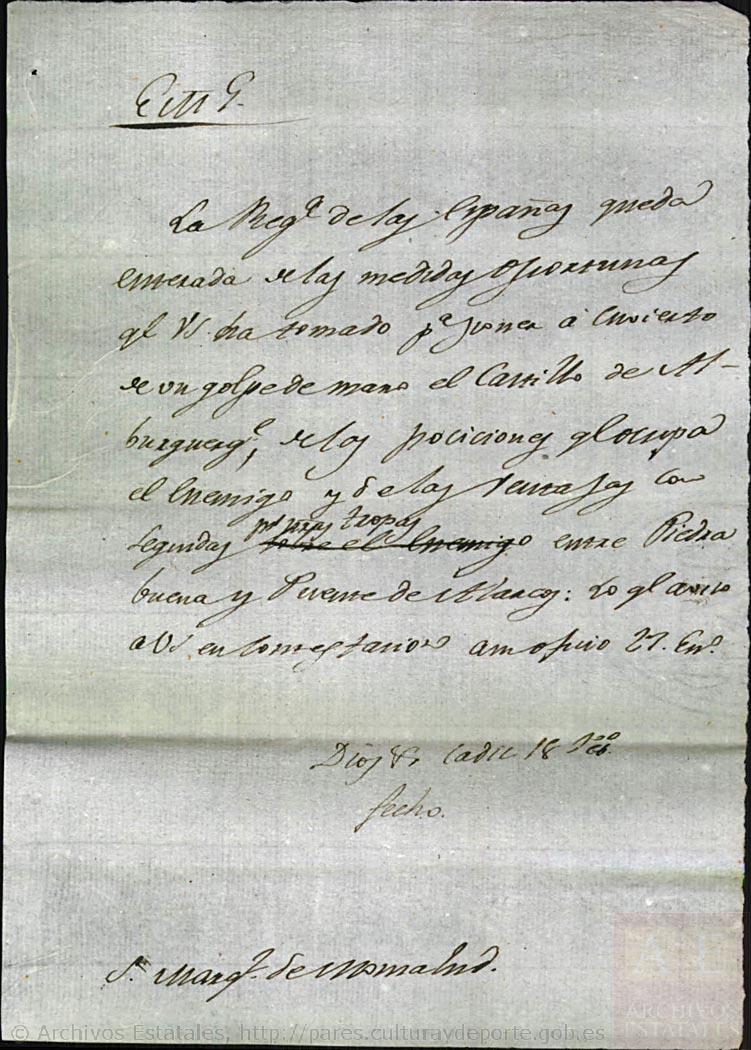 E M G.
La Reg.ª de las Españas queda
enterada de las medidas oportunas
q.e V.S. ha tomado p.ª poner á cuvierto
de un golpe de mano el Castillo de Al-
burquerq.e, de las pociciones q.e ocupa
el Enemigo y de las ventajas con
seguidas p.r ntras tropas sobre el Enemigo entre Piedra
buena y Puente de Alarcos: Lo q.e aviso
a V.S. en contestacion a su oficio 27. En.o
Dios &. Cadiz 18 Feb.o
fecho.
S.r Marq.s de Monsalud.
© Archivos Estatales, http://pares.culturaydeporte.gob.es
ARCHIVOS
ESTATALES